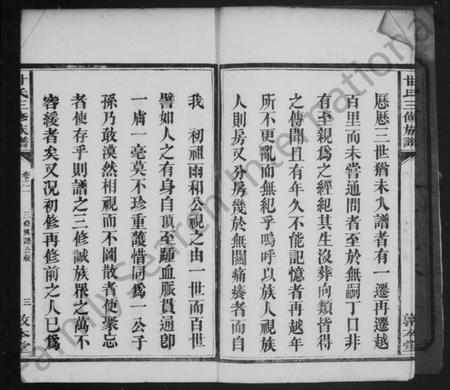 甘氏三修族譜
歷歷三世猶未入譜者有一遷再遷越
百里而未嘗通問者至於無嗣丁口非
有至親為之經紀其生沒葬向類皆得
之傳聞且有年久不能記憶者再越年
所不更亂而無紀乎嗚呼以族人視族
人則房又分房幾於無關痛癢者而自
我 初祖雨和公視之由一世而百世
譬如人之有身自頂至踵血脈貫通即
一膚一毫莫不珍重護惜同為一公子
孫乃敢漠然相視而不圖散者使聚忘
者使存乎則譜之三修誠族眾之萬不
容緩者矣又況初修再修前之人已為
甘氏三修族譜
卷二
三
敦本堂
FamilySearch International